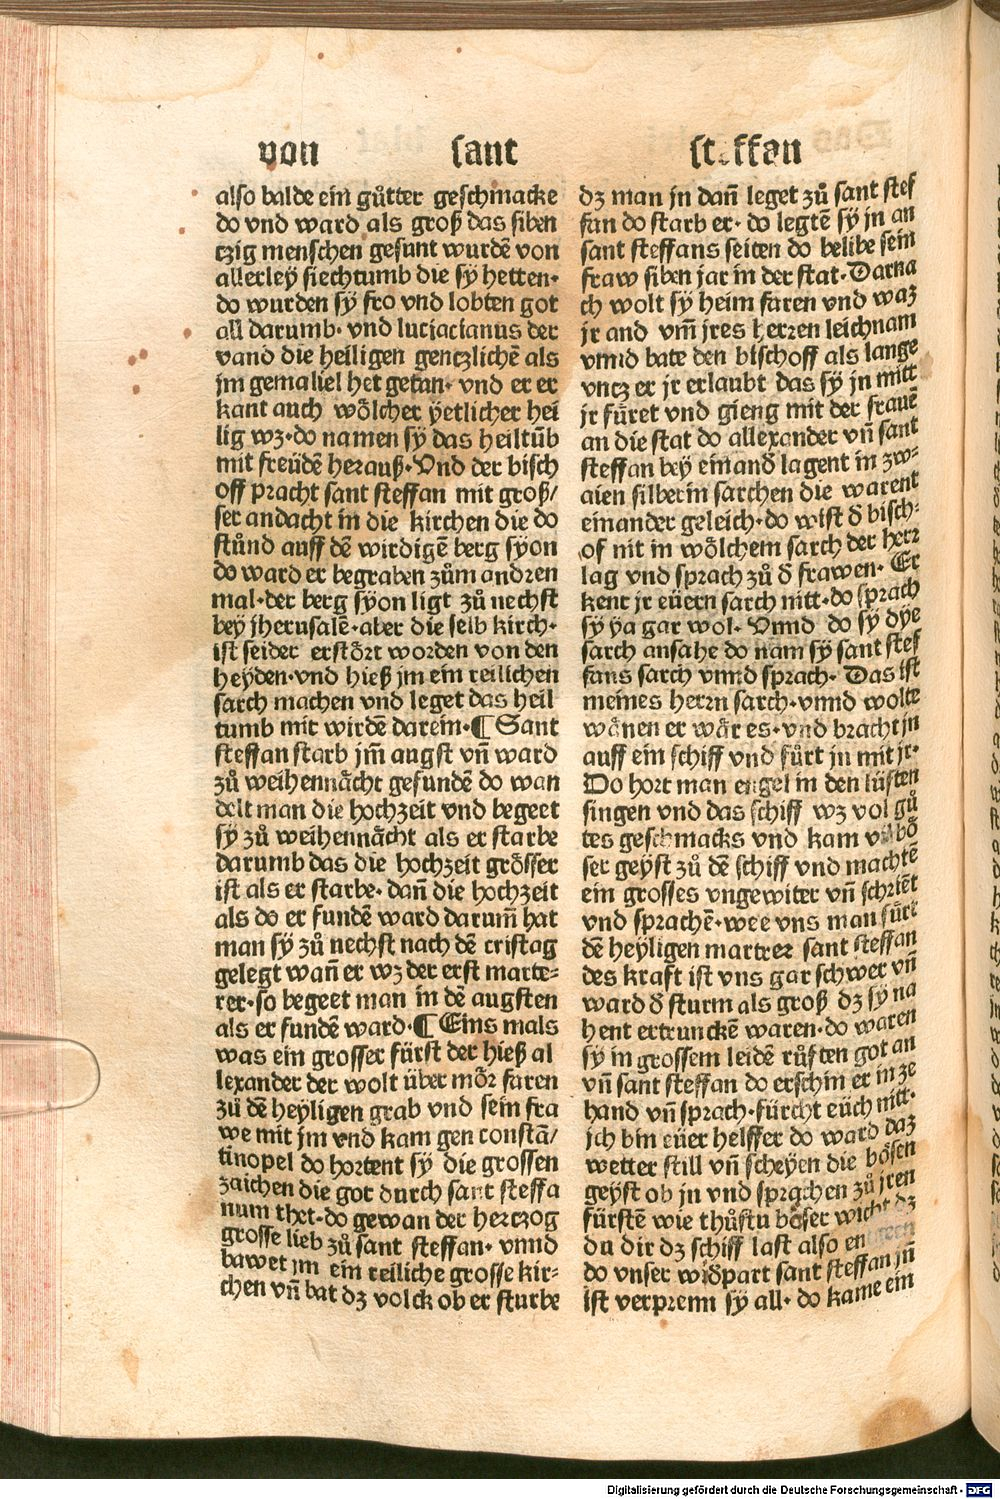 von sant steffan
also balde ein gůtter geschmacke
do vnd ward als groß das siben
tzig menschen gesunt wurdē von
allerley siechtumb die sy hetten·
do wurden sy fro vnd lobten got
all darumb· vnd luciacianus der
vand die heiligen gentzlichē als
jm gemaliel het getan· vnd er er
kant auch wölcher yetlicher hei
lig wz·do namen sy das heiltūb
mit freüdē herauß·Vnd der bisch
off pracht sant steffan mit groß/
ser andacht in die kirchen die do
stůnd auff dē wirdigē berg syon
do ward er begraben zům andren
mal·der berg syon ligt zů nechst
bey jherusalē·aber die selb kirch·
ist seider erstört worden von den
heyden·vnd hieß jm ein reilichen
sarch machen vnd leget das heil
tumb mit wirdē darein·¶ Sant
steffan starb jm̄ augst vn̄ ward
zů weihennächt gefundē do wan
delt man die hochzeit vnd begeet
sy zů weihennächt als er starbe
darumb das die hochzeit grösser
ist als er starbe· dan̄ die hochzeit
als do er fundē ward darum̄ hat
man sy zů nechst nach dē cristag
gelegt wan̄ er wz der erst marte⸗
rer·so begeet man in dē augsten
als er fundē ward·¶ Eins mals
was ein grosser fürst der hieß al
lexander der wolt über mör faren
zů dē heyligen grab vnd sein fra
we mit jm vnd kam gen constā/
tinopel do hortent sy die grossen
zaichen die got durch sant steffa
num thet·do gewan der hertzog
grosse lieb zů sant steffan· vnnd
bawet jm ein reiliche grosse kir⸗
chen vn̄ bat dz volck ob er sturbe
dz man jn dan̄ leget zů sant stef
fan do starb er· do legtē sy jn an
sant steffans seiten do belibe sein
fraw siben jar in der stat·Darna
ch wolt sy heim faren vnd waz
jr and vm̄ jres herren leichnam
vnnd bate den bischoff als lange
vntz er jr erlaubt das sy jn mitt
jr füret vnd gieng mit der frauē
an die stat do allexander vn̄ sant
steffan bey einand̄ lagent in zw⸗
aien silberin sarchen die warent
einander geleich·do wist d̄ bisch⸗
of nit in wölchem sarch der herr
lag vnd sprach zů d̄ frawen· Er
kent jr eüern sarch nitt·do sprach
sy ya gar wol· Vnnd do sy dye
sarch ansahe do nam sy sant stef
fans sarch vnnd sprach· Das ist
meines herrn sarch·vnnd wolte
wänen er wär es·vnd bracht jn
auff ein schiff vnd fůrt jn mit jr·
Do hort man engel in den lüften
singen vnd das schiff wz vol gů
tes geschmacks vnd kam vil bö
ser geyst zů dē schiff vnd machtē
ein grosses vngewiter vn̄ schriēt
vnd sprachē·wee vns man fürt
dē heyligen martrer sant steffan
des kraft ist vns gar schwer vn̄
ward d̄ sturm als groß dz sy na
hent ertrunckē waren·do waren
sy in grossem leidē růften got an
vn̄ sant steffan do erschin er in ze
hand vn̄ sprach·fürcht eüch nitt·
ich bin eüer helffer do ward daz
wetter still vn̄ scheyen die bösen
geyst ob jn vnd sprachen zů jren
fürstē wie thůstu böser wicht dz
du dir dz schiff last also
do vnser wid̄part sant steffan jn̄
ist verprenn sy all· do kame ein
Digitalisierung gefördert durch die Deutsche Forschungsgemeinschaft - DFG